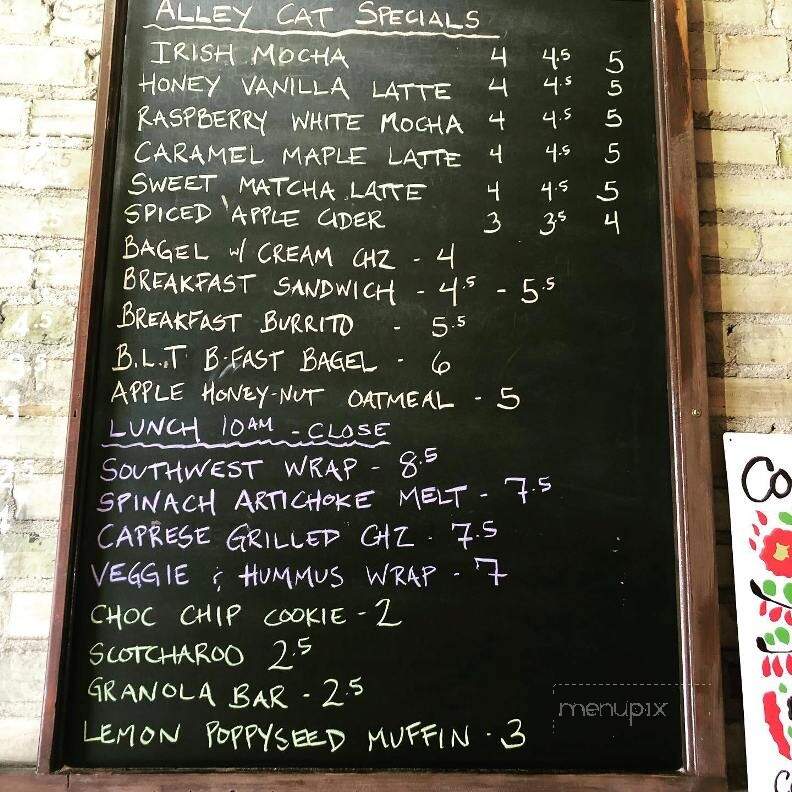 ALLEY CAT SPECIALS
IRISH MOCHA 4 4.5 5
HONEY VANILLA LATTE 4 4.5 5
RASPBERRY WHITE MOCHA 4 4.5 5
CARAMEL MAPLE LATTE 4 4.5 5
SWEET MATCHA LATTE 4 4.5 5
SPICED APPLE CIDER 3 3.5 4
BAGEL W/ CREAM CHZ - 4
BREAKFAST SANDWICH - 4.5 - 5.5
BREAKFAST BURRITO - 5.5
B.L.T B-FAST BAGEL - 6
APPLE HONEY-NUT OATMEAL - 5
LUNCH 10AM - CLOSE
SOUTHWEST WRAP - 8.5
SPINACH ARTICHOKE MELT - 7.5
CAPRESE GRILLED CHZ - 7.5
VEGGIE & HUMMUS WRAP - 7
CHOC CHIP COOKIE - 2
SCOTCHAROO 2.5
GRANOLA BAR - 2.5
LEMON POPPYSEED MUFFIN - 3
menupix
Co